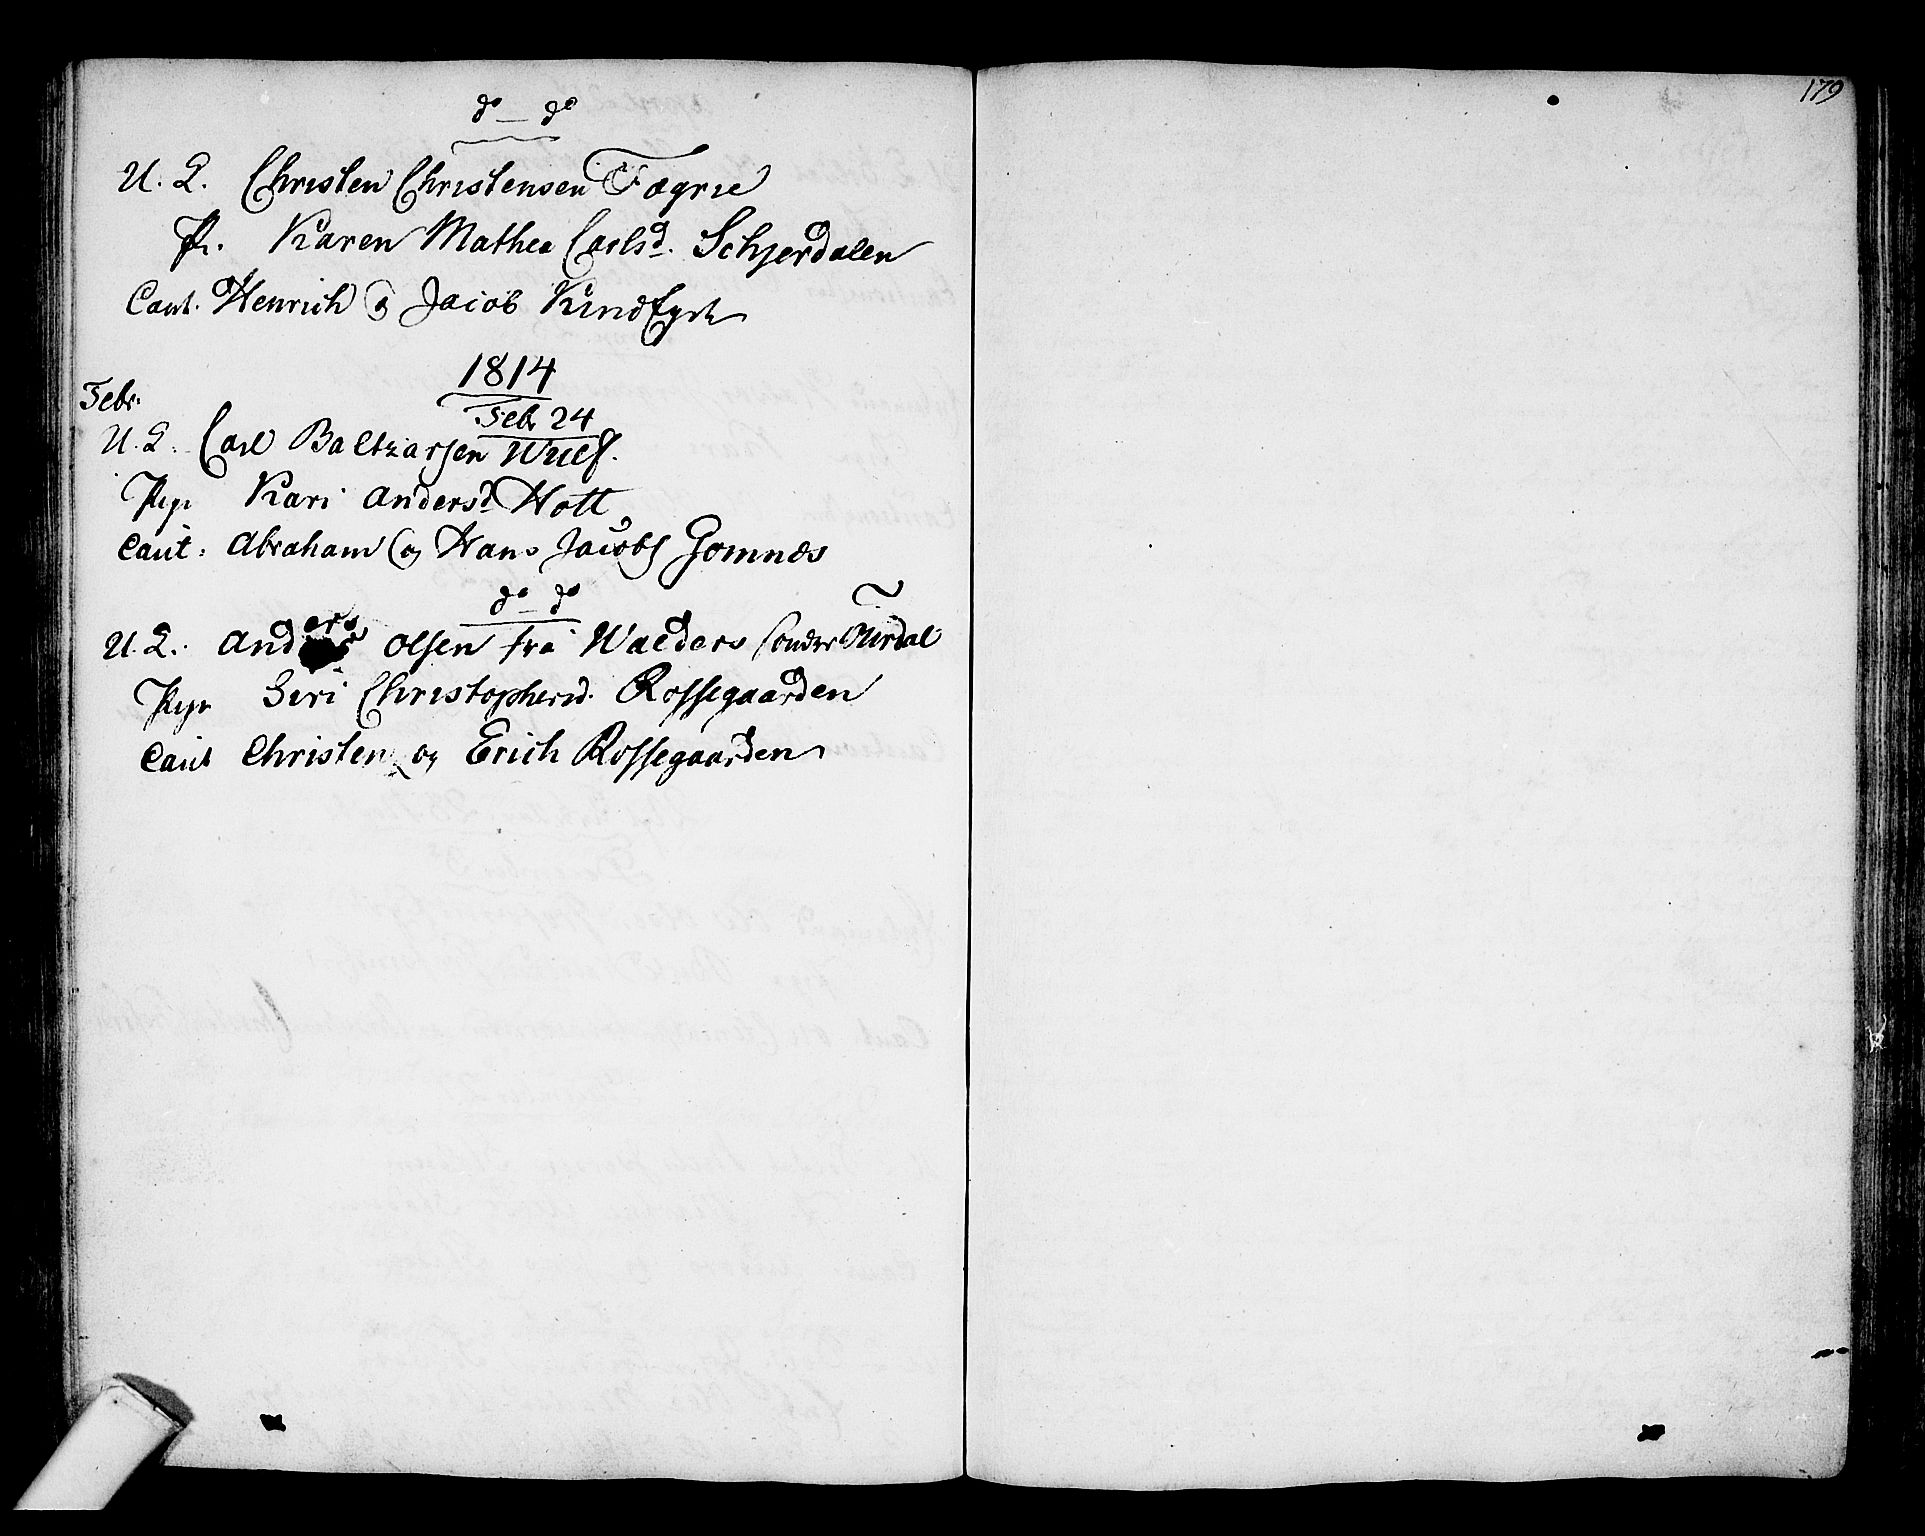 dº — dº
U. L. Christen Christensen Fagrie
P. Karen Mathea Carlsd. Schjerdalen
Caut. Henrich & Jacob Kindfyrk
1814
Febr.
Feb 24
U. L. Carl Baltzarsen Wulf.
Pige Kari Andersd Hott
Caut: Abraham og Hans Jacobs Gomnæs
dº — dº
U. L. Anders Olsen fra Walders Sondre
Pige Siri Christophersd. Rossegaarden
Caut Christen og Erich Rossegaarden
179